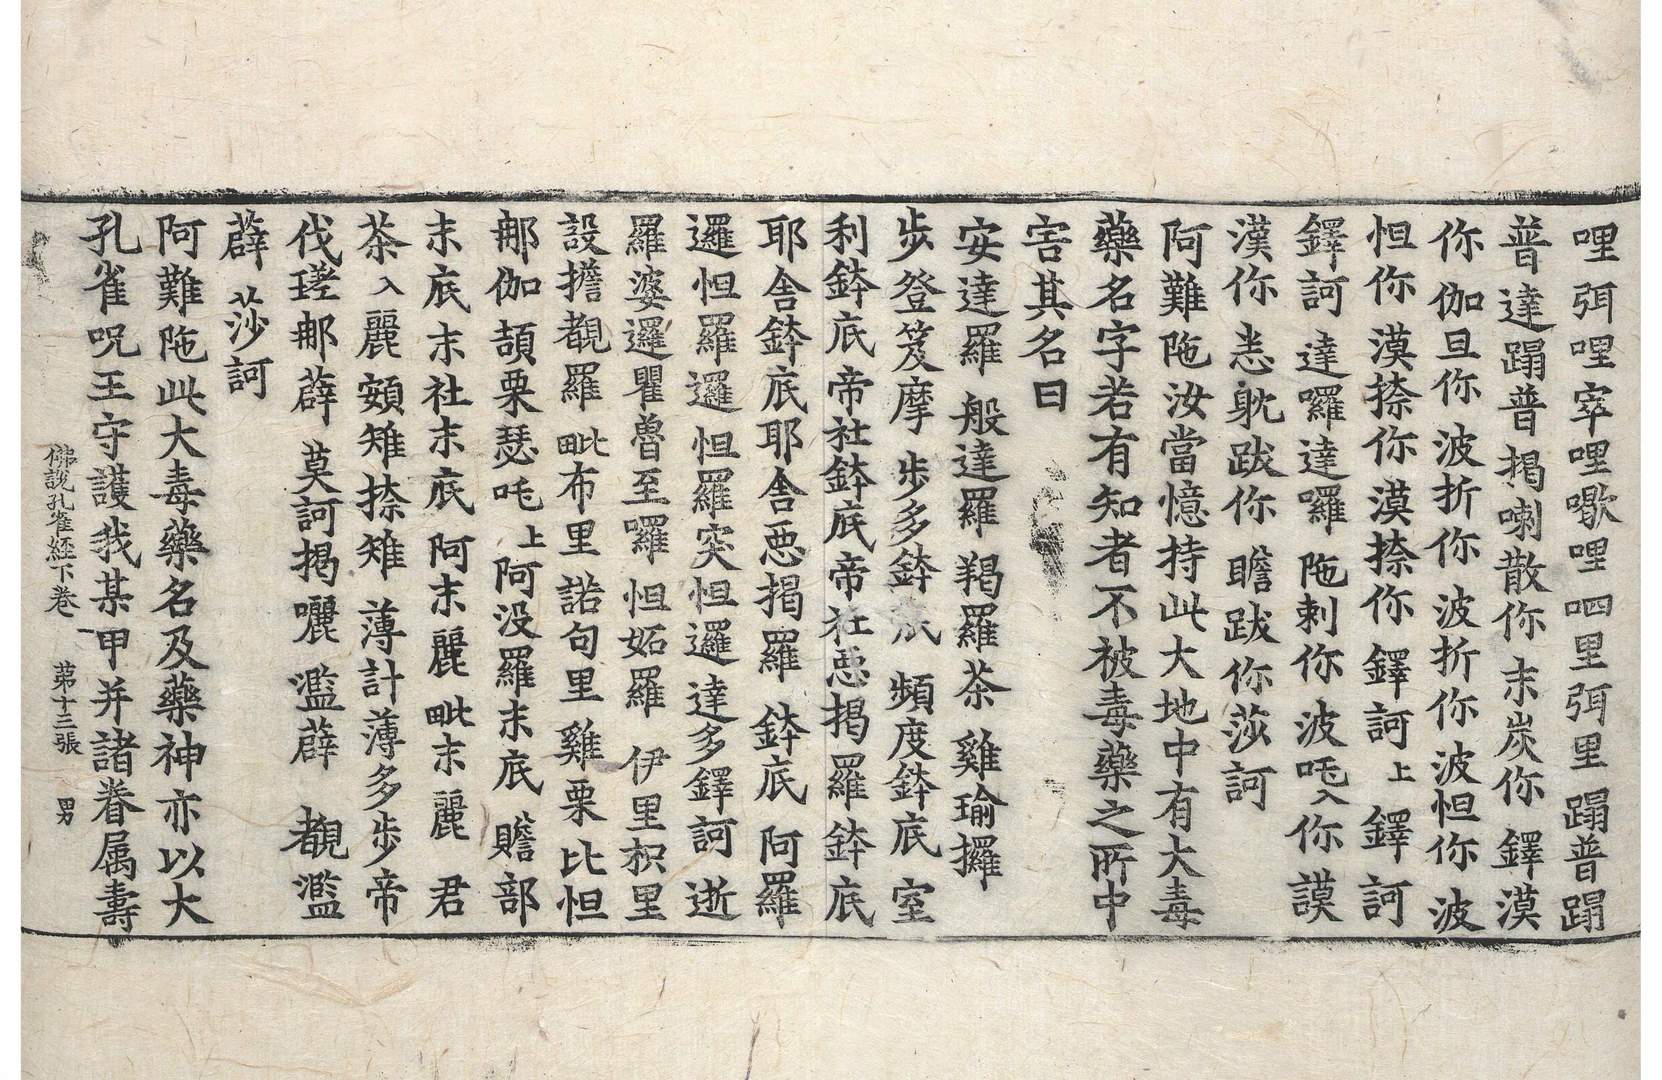 哩弭哩窣哩㗿哩呬里弭里蹋普蹋
普達蹋普揭喇散你末炭你鐸漠
你伽旦你波折你波折你波怛你波
怛你漠捺你漠捺你鐸訶上鐸訶
鐸訶達囉達囉陁剌你波吒入你謨
漢你恚躭跋你瞻跋你莎訶
阿難陁汝當憶持此大地中有大毒
藥名字若有知者不被毒藥之所中
害其名曰
安達羅般達羅羯羅茶雞瑜攞
步登笈摩步多鉢底頻度鉢底室
利鉢底帝社鉢底帝社惡揭羅鉢底
耶舍鉢底耶舍惡揭羅鉢底阿羅
邏怛羅邏怛羅突怛邏達多鐸訶逝
羅婆邏瞿魯至囉怛妬羅伊里枳里
設擔覩羅毗布里諾句里雞栗比怛
郍伽頡栗瑟吒上阿没羅末底贍部
末底末社末底阿末麗毗末麗君
荼入麗頞雉捺雉薄計薄多步帝
伐瑳郍薜莫訶揭囇濫薜覩濫
薜莎訶
阿難陁此大毒藥名及藥神亦以大
孔雀呪王守護我某甲并諸眷属壽
佛說孔雀經下卷 苐十三張 男